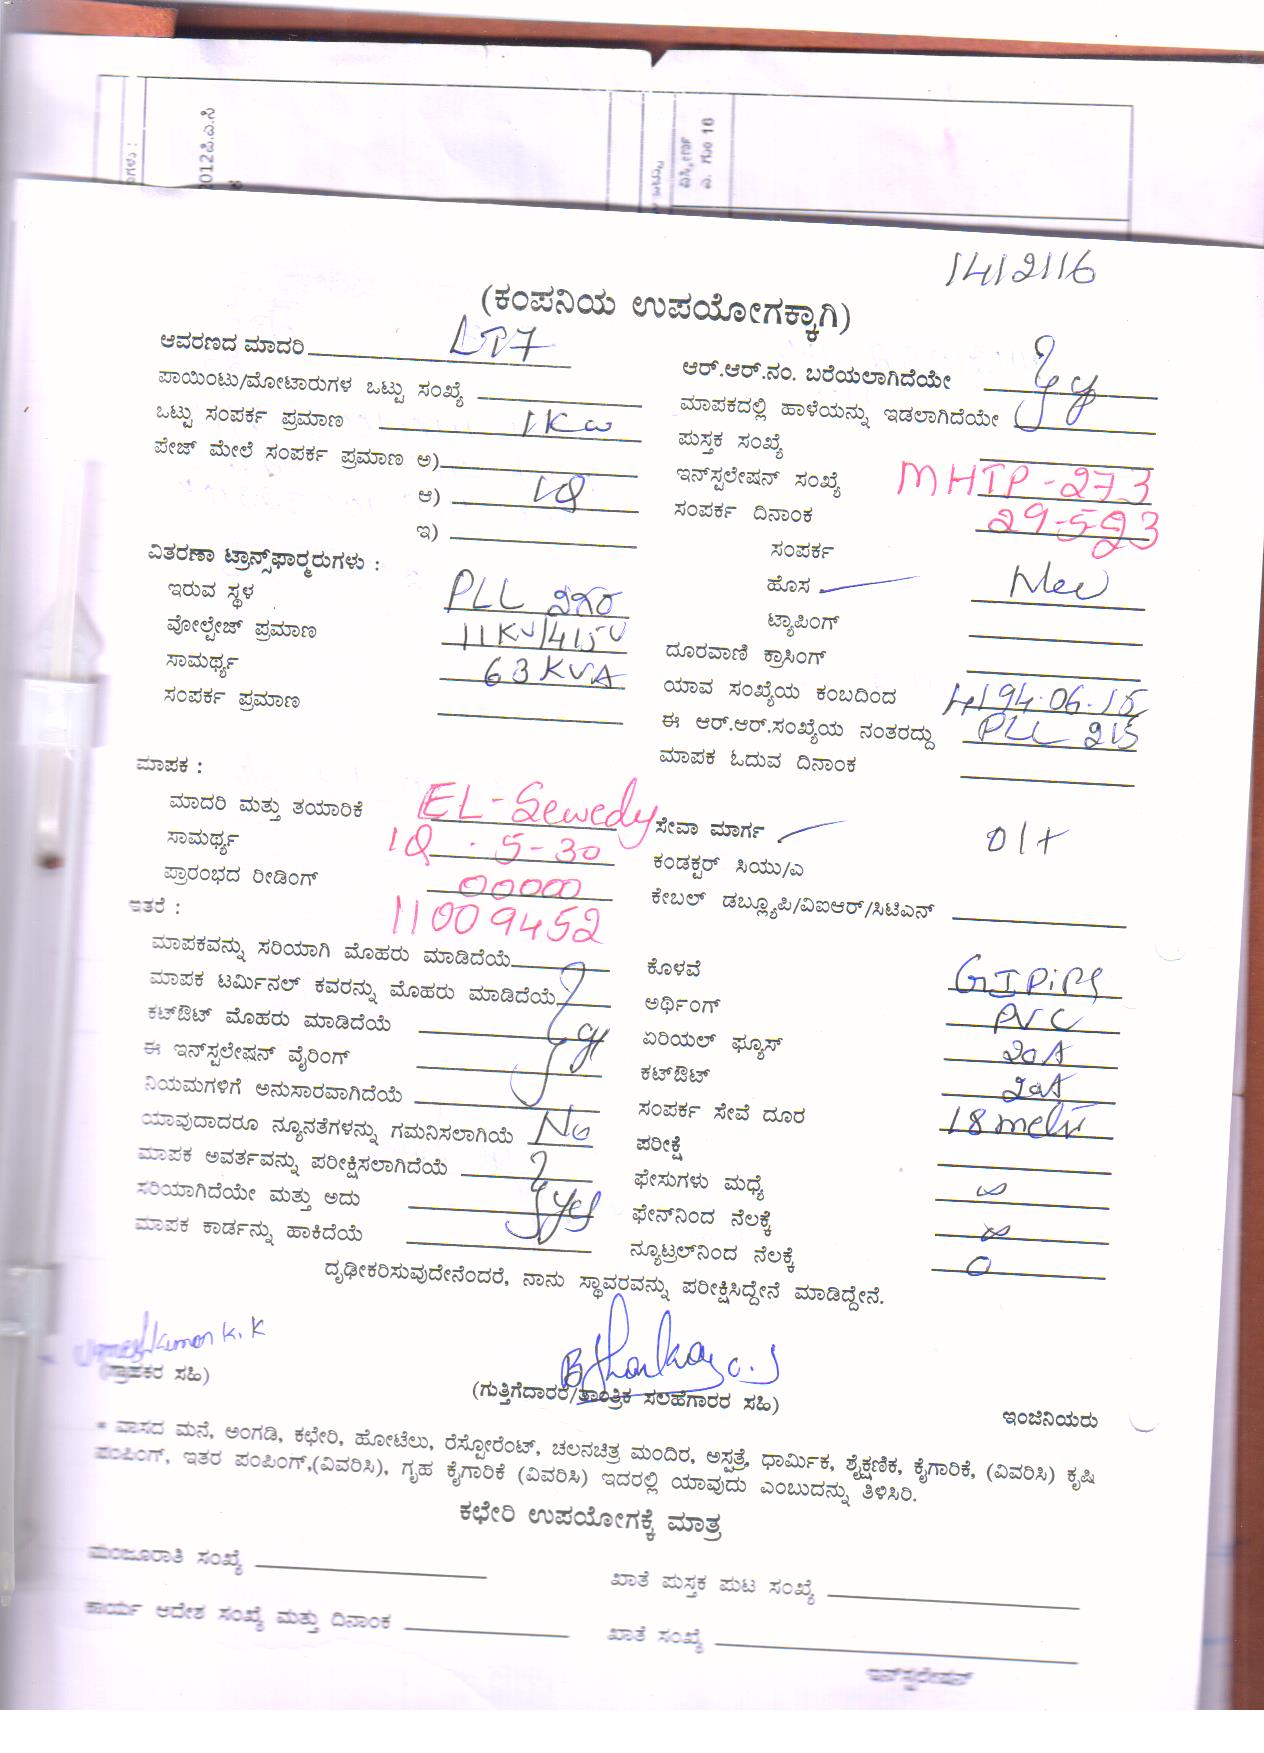 2012ಪಿ.ಎ.ಸಿ
ವಿಸ್ತೀರ್ಣ
ಎ. ಗುಂ 16
14/2116
(ಕಂಪನಿಯ ಉಪಯೋಗಕ್ಕಾಗಿ)
ಆವರಣದ ಮಾದರಿ LT7
ಪಾಯಿಂಟು/ಮೋಟಾರುಗಳ ಒಟ್ಟು ಸಂಖ್ಯೆ
ಒಟ್ಟು ಸಂಪರ್ಕ ಪ್ರಮಾಣ 1KW
ಪೇಜ್ ಮೇಲೆ ಸಂಪರ್ಕ ಪ್ರಮಾಣ ಅ)
ಆ) 1Q
ಇ)
ವಿತರಣಾ ಟ್ರಾನ್ಸ್‌ಫಾರ್ಮರುಗಳು :
ಇರುವ ಸ್ಥಳ PLL ನಗರ
ವೋಲ್ಟೇಜ್ ಪ್ರಮಾಣ 11KV/415V
ಸಾಮರ್ಥ್ಯ 63 KVA
ಸಂಪರ್ಕ ಪ್ರಮಾಣ
ಆರ್.ಆರ್.ನಂ. ಬರೆಯಲಾಗಿದೆಯೇ
ಮಾಪಕದಲ್ಲಿ ಹಾಳೆಯನ್ನು ಇಡಲಾಗಿದೆಯೇ
ಪುಸ್ತಕ ಸಂಖ್ಯೆ
ಇನ್‌ಸ್ಟಲೇಷನ್ ಸಂಖ್ಯೆ MHTP-273
ಸಂಪರ್ಕ ದಿನಾಂಕ 29-5-23
ಸಂಪರ್ಕ
ಹೊಸ New
ಟ್ಯಾಪಿಂಗ್
ದೂರವಾಣಿ ಕ್ರಾಸಿಂಗ್
ಯಾವ ಸಂಖ್ಯೆಯ ಕಂಬದಿಂದ
ಈ ಆರ್.ಆರ್.ಸಂಖ್ಯೆಯ ನಂತರದ್ದು PLL 215
ಮಾಪಕ ಓದುವ ದಿನಾಂಕ
ಮಾಪಕ :
ಮಾದರಿ ಮತ್ತು ತಯಾರಿಕೆ EL-Sewedy
ಸಾಮರ್ಥ್ಯ 1Q . 5-30
ಪ್ರಾರಂಭದ ರೀಡಿಂಗ್ 00000
11009452
ಇತರೆ :
ಮಾಪಕವನ್ನು ಸರಿಯಾಗಿ ಮೊಹರು ಮಾಡಿದೆಯೆ
ಮಾಪಕ ಟರ್ಮಿನಲ್ ಕವರನ್ನು ಮೊಹರು ಮಾಡಿದೆಯೆ
ಕಟ್‌ಔಟ್ ಮೊಹರು ಮಾಡಿದೆಯೆ
ಈ ಇನ್‌ಸ್ಟಲೇಷನ್ ವೈರಿಂಗ್
ನಿಯಮಗಳಿಗೆ ಅನುಸಾರವಾಗಿದೆಯೆ
ಯಾವುದಾದರೂ ನ್ಯೂನತೆಗಳನ್ನು ಗಮನಿಸಲಾಗಿಯೆ No
ಮಾಪಕ ಅವರ್ತವನ್ನು ಪರೀಕ್ಷಿಸಲಾಗಿದೆಯೆ
ಸರಿಯಾಗಿದೆಯೇ ಮತ್ತು ಅದು yes
ಮಾಪಕ ಕಾರ್ಡನ್ನು ಹಾಕಿದೆಯೆ
ಸೇವಾ ಮಾರ್ಗ O/H
ಕಂಡಕ್ಟರ್ ಸಿಯು/ಎ
ಕೇಬಲ್ ಡಬ್ಲ್ಯೂಪಿ/ವಿಐಆರ್/ಸಿಟಿಎನ್
ಕೊಳವೆ GI Pipe
ಅರ್ಥಿಂಗ್ PVC
ಏರಿಯಲ್ ಫ್ಯೂಸ್ 20A
ಕಟ್‌ಔಟ್ 20A
ಸಂಪರ್ಕ ಸೇವೆ ದೂರ 18
ಪರೀಕ್ಷೆ
ಫೇಸುಗಳು ಮಧ್ಯೆ ∞
ಫೇಸ್‌ನಿಂದ ನೆಲಕ್ಕೆ ∞
ನ್ಯೂಟ್ರಲ್‌ನಿಂದ ನೆಲಕ್ಕೆ 0
ದೃಢೀಕರಿಸುವುದೇನೆಂದರೆ, ನಾನು ಸ್ಥಾವರವನ್ನು ಪರೀಕ್ಷಿಸಿದ್ದೇನೆ ಮಾಡಿದ್ದೇನೆ.
(ಗ್ರಾಹಕರ ಸಹಿ)
(ಗುತ್ತಿಗೆದಾರರ/ತಾಂತ್ರಿಕ ಸಲಹೆಗಾರರ ಸಹಿ)
ಇಂಜಿನಿಯರು
* ವಾಸದ ಮನೆ, ಅಂಗಡಿ, ಕಛೇರಿ, ಹೋಟೆಲು, ರೆಸ್ಟೋರೆಂಟ್, ಚಲನಚಿತ್ರ ಮಂದಿರ, ಅಸ್ಪತ್ರೆ, ಧಾರ್ಮಿಕ, ಶೈಕ್ಷಣಿಕ, ಕೈಗಾರಿಕೆ, (ವಿವರಿಸಿ) ಕೃಷಿ
ಪಂಪಿಂಗ್, ಇತರ ಪಂಪಿಂಗ್,(ವಿವರಿಸಿ), ಗೃಹ ಕೈಗಾರಿಕೆ (ವಿವರಿಸಿ) ಇದರಲ್ಲಿ ಯಾವುದು ಎಂಬುದನ್ನು ತಿಳಿಸಿರಿ.
ಕಛೇರಿ ಉಪಯೋಗಕ್ಕೆ ಮಾತ್ರ
ಮಂಜೂರಾತಿ ಸಂಖ್ಯೆ
ಖಾತೆ ಪುಸ್ತಕ ಪುಟ ಸಂಖ್ಯೆ
ಕಾರ್ಯ ಆದೇಶ ಸಂಖ್ಯೆ ಮತ್ತು ದಿನಾಂಕ
ಖಾತೆ ಸಂಖ್ಯೆ
ಇನ್‌ಸ್ಟಲೇಷನ್